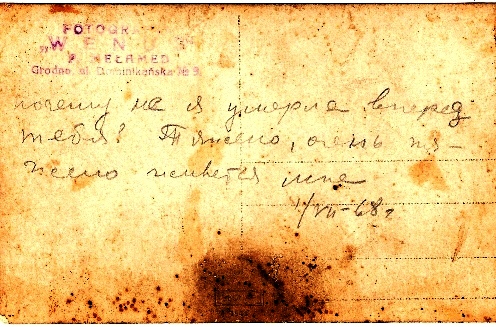 FOTOGR
"WEN
MEŁAMED
Grodno, ul. Dominikańska № 3
почему не я умерла вперед
тебя? Тяжело, очень тя-
жело живется мне
1/VII-68 г